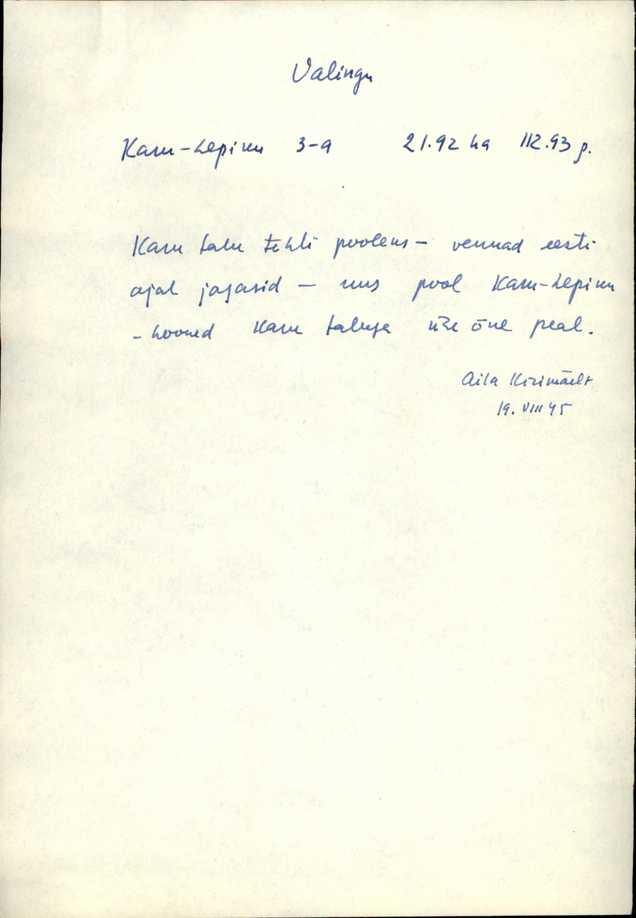 Valingu
Karu-Lepiku 3-a 21.92 ha 112.93 p.
Karu talu tehti pooleks - vennad eesti
ajal jagasid - uus pool Karu-Lepiku
- hooned Karu taluga ühe õue peal.
Aita Kirimäelt
19. VIII 45